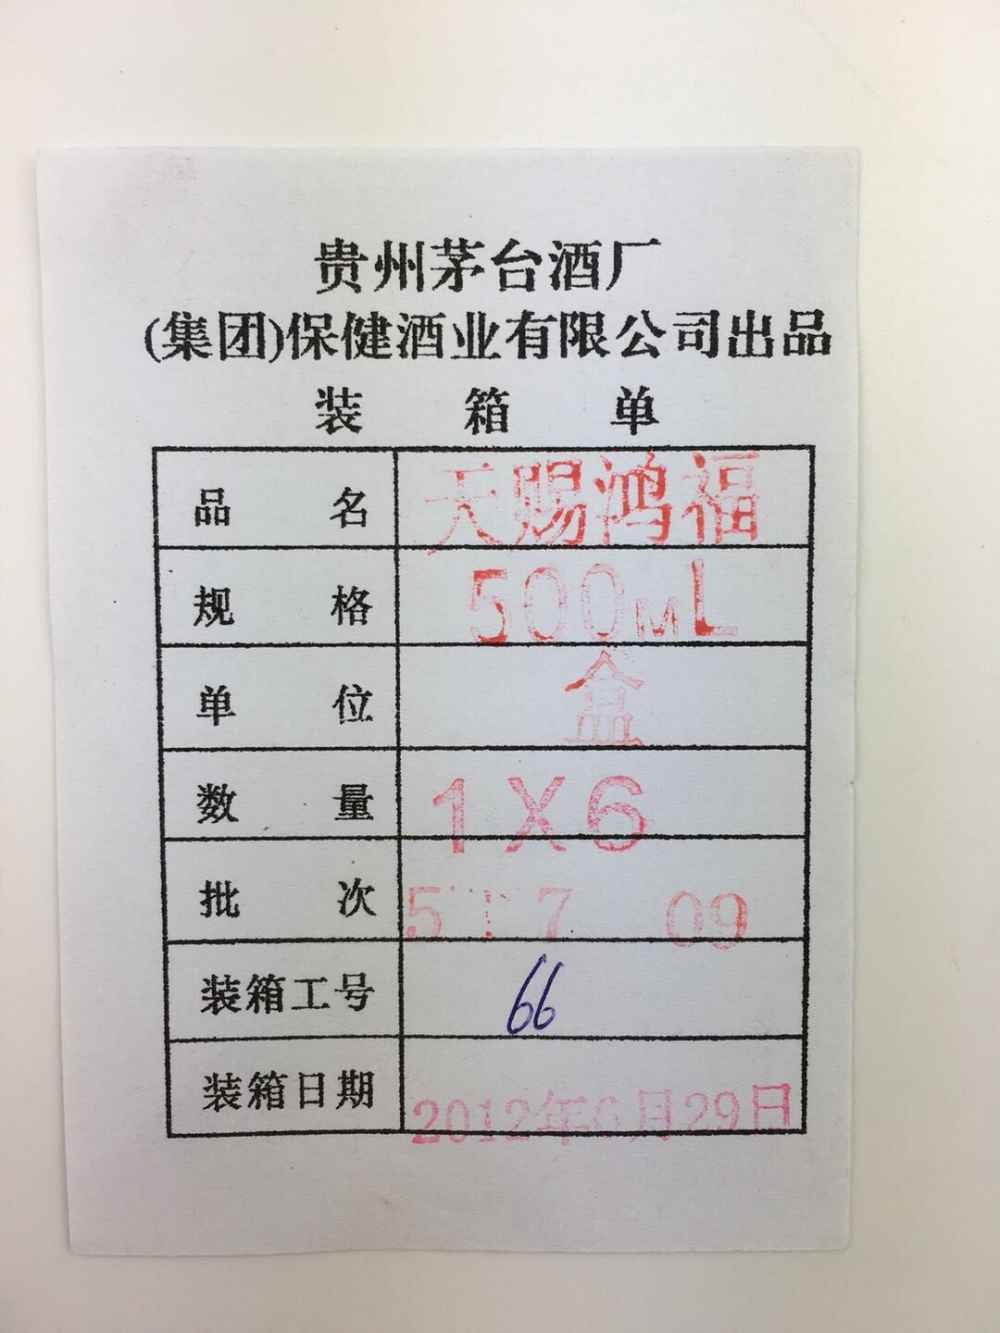 贵州茅台酒厂
(集团)保健酒业有限公司出品
装 箱 单
品 名 天赐鸿福
规 格 500ML
单 位 盒
数 量 1X6
批 次 5 7 09
装箱工号 66
装箱日期 2012年6月29日